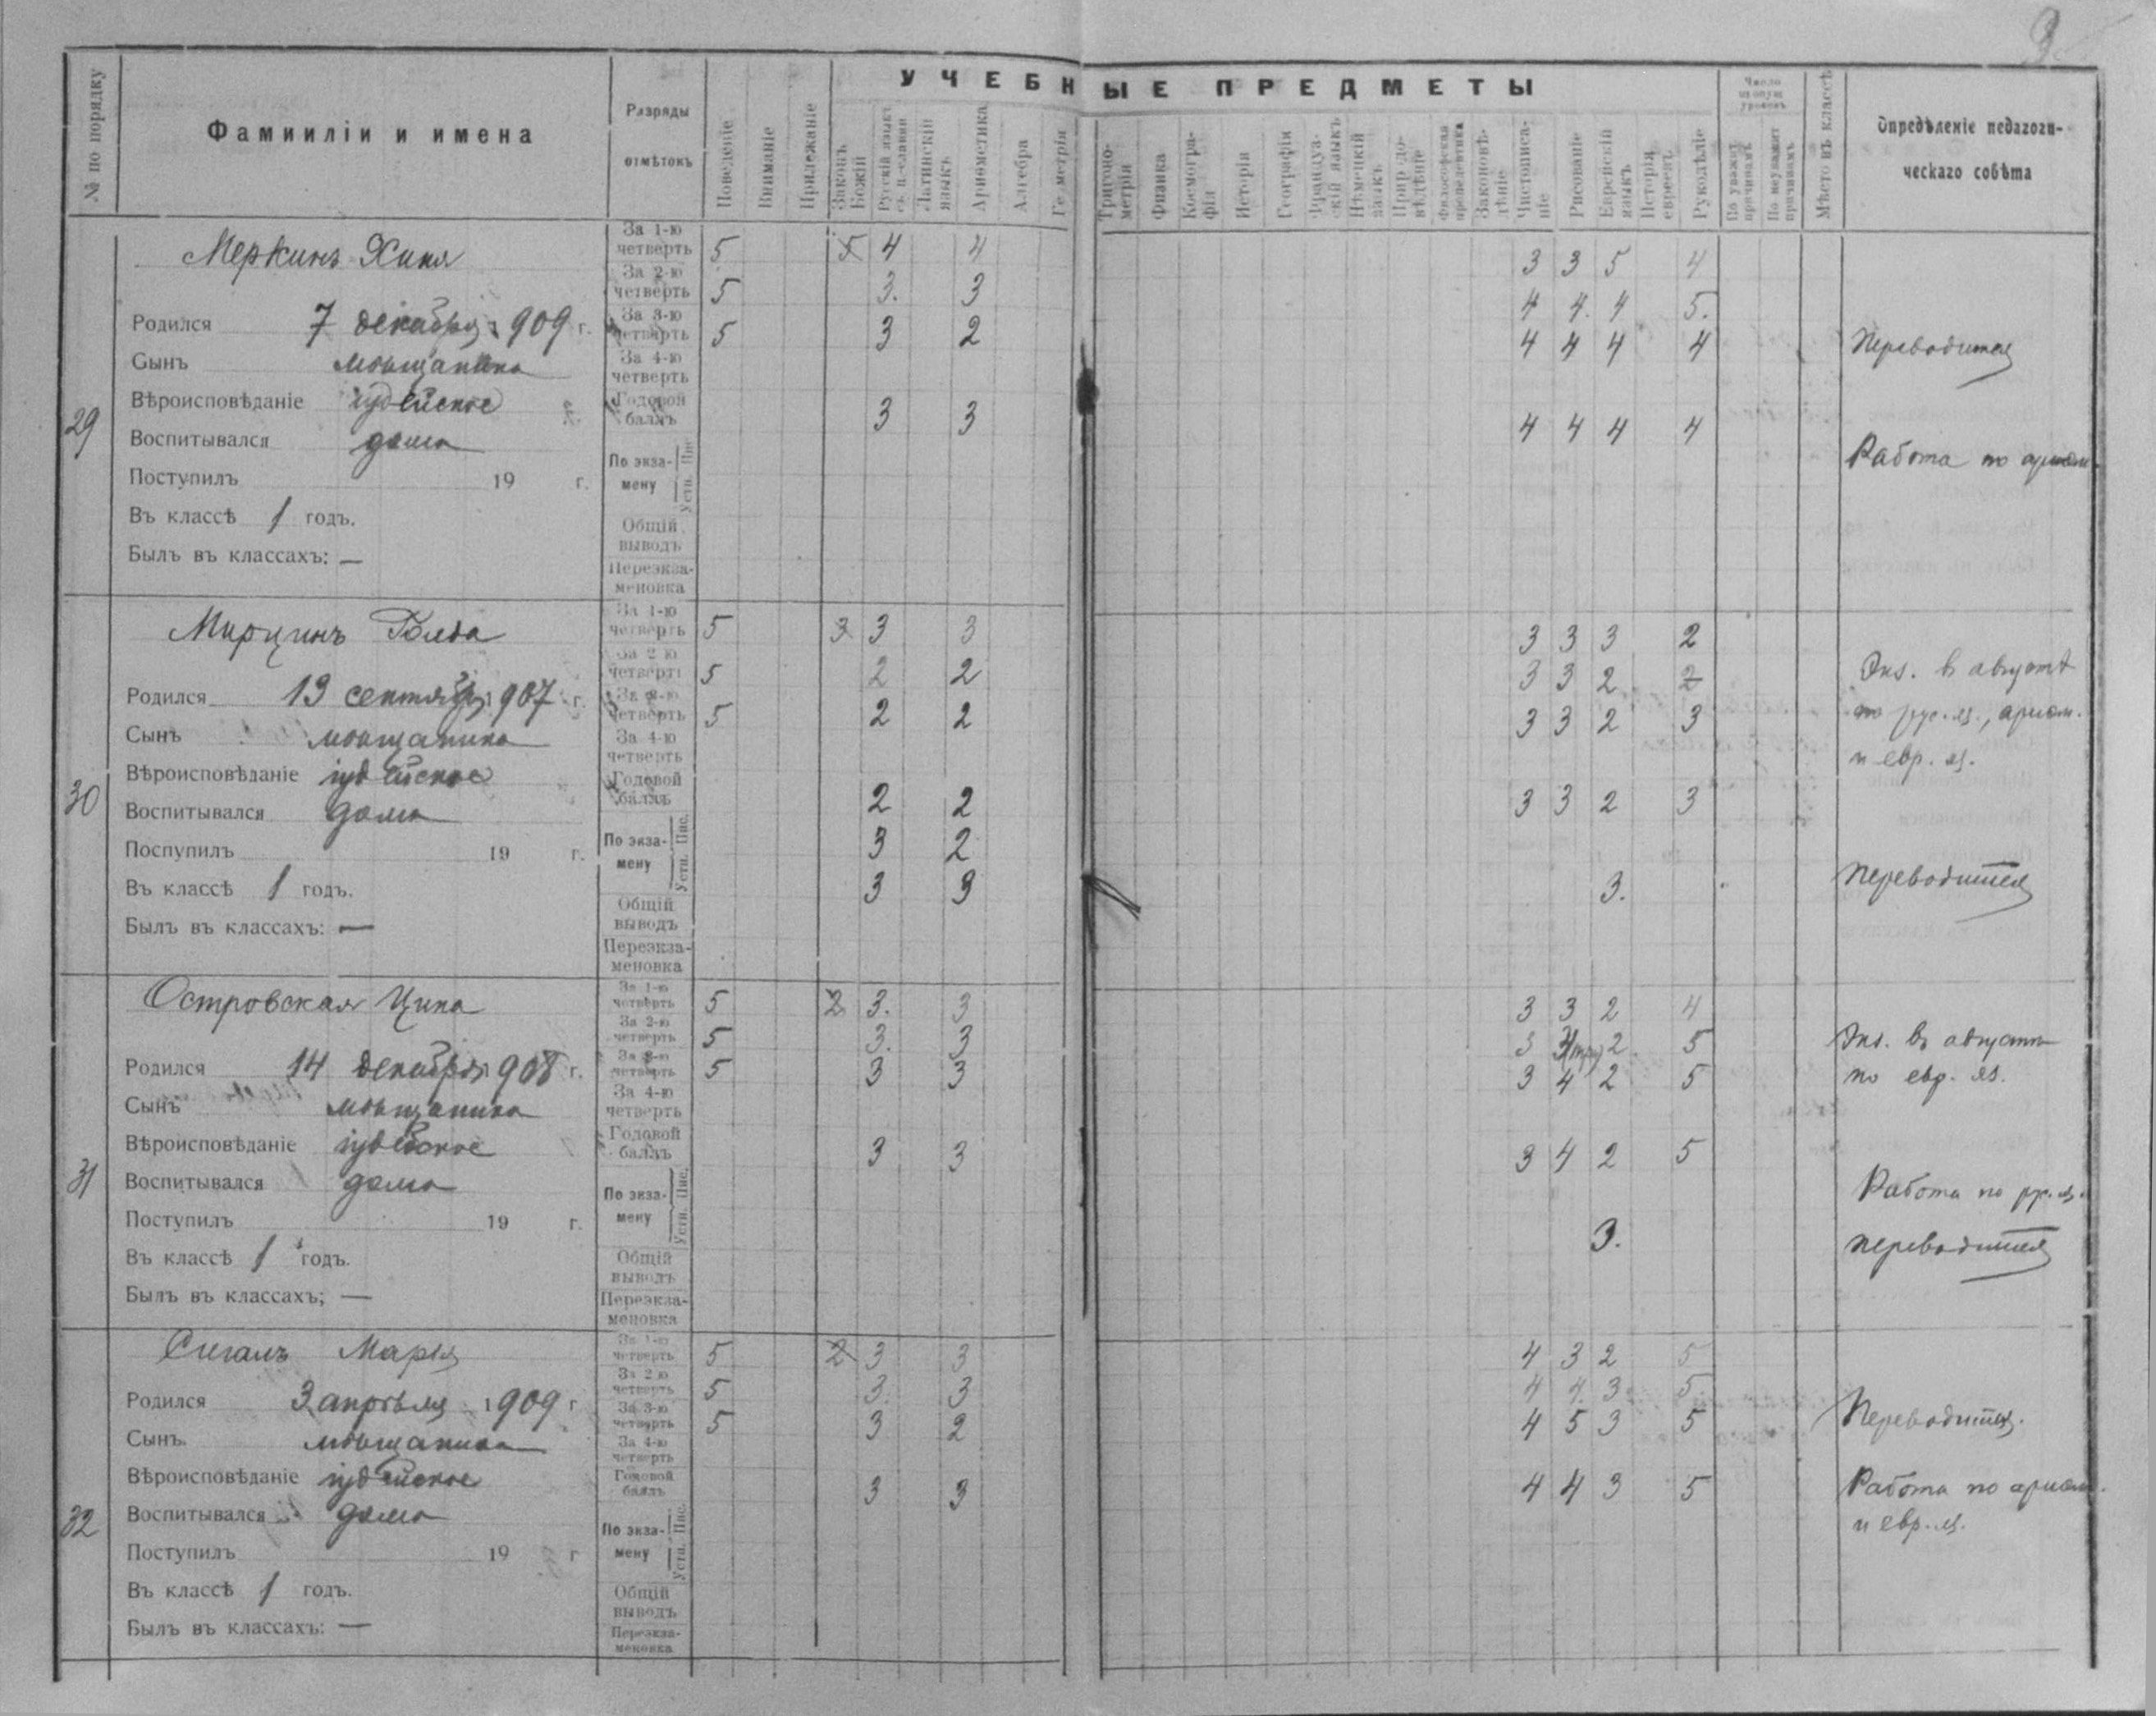 9
УЧЕБНЫЕ ПРЕДМЕТЫ
№ по порядку
Фамииліи и имена
Разряды
отмѣтокъ
Поведеніе
Вниманіе
Прилежаніе
Законъ Божій
Русскій языкъ съ ц.-славян
Латинскій языкъ
Ариѳметика
Алгебра
Ге метрія
Тригоно-метрія
Физика
Космогра-фія
Исторія
Географія
Француз-скій языкъ
Нѣмецкій языкъ
Природо-вѣдѣніе
Философская пропедевтика
Законовѣ-дѣніе
Чистописа-ніе
Рисованіе
Еврейскій языкъ
Исторія евреевъ
Рукодѣліе
Число пропущ уроковъ
По уважит причинамъ
По неуважит причинамъ
Мѣсто въ классѣ
Опредѣленіе педагоги-
ческаго совѣта
29
Меркинъ Хиня
Родился 7 декабря 1909 г.
Сынъ мѣщанина
Вѣроисповѣданіе іудейское
Воспитывался дома
Поступилъ 19 г.
Въ классѣ 1 годъ.
Былъ въ классахъ: —
За 1-ю четверть 5 5 4 4 3 3 5 4
За 2-ю четверть 5 3. 3 4 4. 4 5.
За 3-ю четверть 5 3 2 4 4 4 4
За 4-ю четверть
Годовой баллъ 3 3 4 4 4 4
По экза-мену Пис Устн.
Общій выводъ
Переэкза-меновка
Переводится
Работа по ариѳм.
30
Мирцинъ Голда
Родился 13 сентября 1907 г.
Сынъ мѣщанина
Вѣроисповѣданіе іудейское
Воспитывался дома
Поспупилъ 19 г.
Въ классѣ 1 годъ.
Былъ въ классахъ: —
За 1-ю четверть 5 3 3 3 3 3 3 2
За 2 ю четверть 5 2 2 3 3 2 2
За 3-ю четверть 5 2 2 3 3 2 3
За 4-ю четверть
Годовой баллъ 2 2 3 3 2 3
По экза-мену Пис. 3 2
Устн. 3 3 3.
Общій выводъ
Переэкза-меновка
Экз. в августѣ
по рус. яз., ариѳм.
и евр. яз.
Переводится
31
Островская Цина
Родился 14 декабря 1908 г.
Сынъ мѣщанина
Вѣроисповѣданіе іудейское
Воспитывался дома
Поступилъ 19 г.
Въ классѣ 1 годъ.
Былъ въ классахъ; —
За 1-ю четверть 5 2 3. 3 3 3 2 4
За 2-ю четверть 5 3. 3 3 3(три) 2. 5
За 3-ю четверть 5 3 3 3 4 2 5
За 4-ю четверть
Годовой баллъ 3 3 3 4 2 5
По экза-мену Пис. Устн. 3.
Общій выводъ
Переэкза-меновка
Экз. въ августѣ
по евр. яз.
Работа по рус. яз.
переводится
32
Сигалъ Марія
Родился 3 апрѣля 1909 г
Сынъ мѣщанина
Вѣроисповѣданіе іудейское
Воспитывался дома
Поступилъ 19 г
Въ классѣ 1 годъ.
Былъ въ классахъ: —
За 1-ю четверть 5 2 3 3 4 3 2 5
За 2 ю четверть 5 3. 3 4 4. 3 5
За 3-ю четверть 5 3 2 4 5 3 5
За 4-ю четверть
Годовой баллъ 3 3 4 4 3 5
По экза-мену Пис. Устн.
Общій выводъ
Переэкза-меновка
Переводится.
Работа по ариѳм.
и евр. яз.